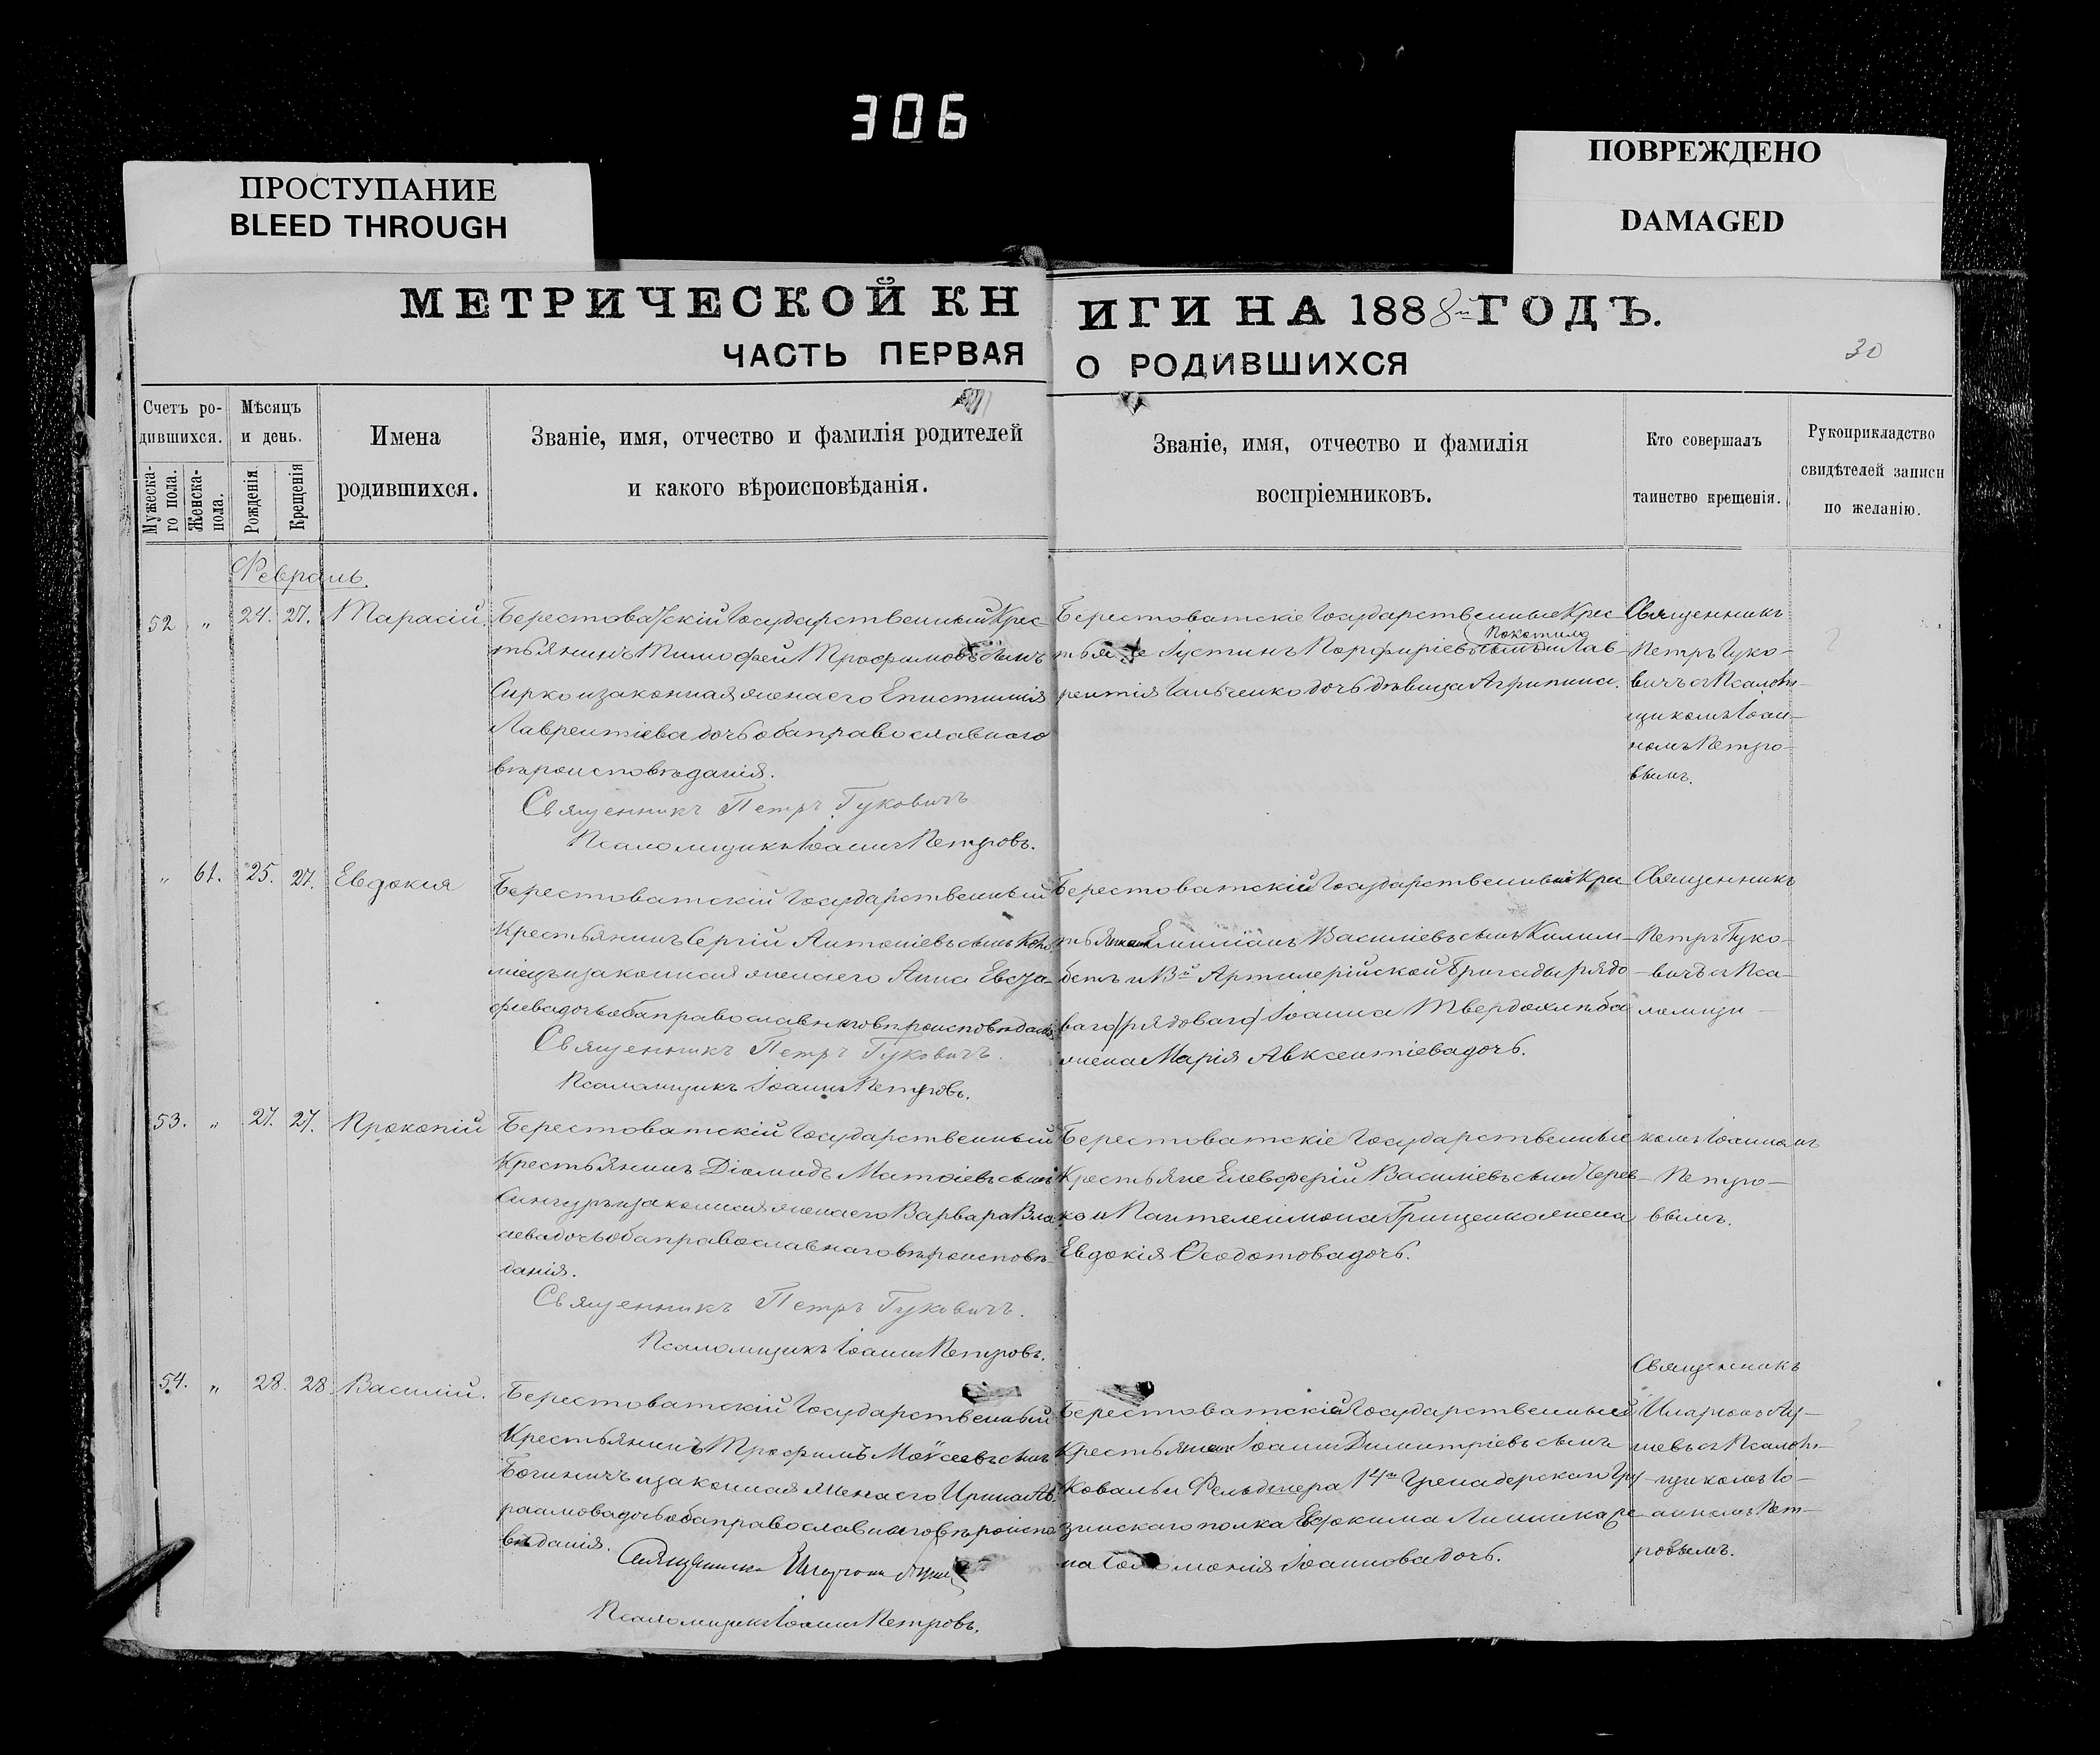 306
ПРОСТУПАНИЕ
BLEED THROUGH
ПОВРЕЖДЕНО
DAMAGED
МЕТРИЧЕСКОЙ КН
ЧАСТЬ ПЕРВАЯ
ИГИ НА 1888й ГОДЪ.
О РОДИВШИХСЯ
30
Счетъ ро-
дившихся.
Мужеска-
го пола.
Женска-
пола.
Мѣсяцъ
и день.
Рожденія
Крещенія
Имена
родившихся.
Званіе, имя, отчество и фамилія родителей
и какого вѣроисповѣданія.
Званіе, имя, отчество и фамилія
воспріемниковъ.
Кто совершалъ
таинство крещенія.
Рукоприкладство
свидѣтелей записи
по желанію.
Февраль.
52 „ 24. 27. Тарасій.
Берестоватскій Государственный Крес-
тьянинъ Тимофей Трофимовъ сынъ
Сирко и законная жена его Епистимія
Лаврентіева дочь оба православнаго
вѣроисповѣданія.
Священникъ Петръ Гуковичъ
Псаломщикъ Іоаннъ Петровъ.
Берестоватскіе Государственные Крес-
Покотило
Іустинъ Порфиріевъ сынъ и Лав-
рентія Гальченко дочь дѣвица Агрипина.
Священникъ
Петръ Гуко-
вичъ съ Псалом-
щикомъ Іоан-
номъ Петро-
вымъ.
„ 61. 25. 27. Евдокія
Берестоватскій Государственный
Крестьянинъ Сергій Антоніевъ сынъ Коло
міецъ и законная жена его Анна Евста-
фіева дочь оба православнаго вѣроисповѣданія
Священникъ Петръ Гуковичъ.
Псаломщикъ Іоаннъ Петровъ.
Берестоватскій Государственный Крес
тьянинъ Емиліанъ Василіевъ сынъ
Артилерійской Бригады рядо
ваго (рядоваго) Іоанна Твердохлѣба
жена Марія Авксентіева дочь.
Священникъ
Петръ Гуко-
вичъ съ Пса-
ломщи-
53. „ 27. 27. Прокопій
Берестоватскій Государственный
Крестьянинъ Діомидъ Матѳіевъ сынъ
Сингуръ и законная жена его Варвара Вла
сіева дочь оба православнаго вѣроисповѣ-
данія.
Священникъ Петръ Гуковичъ.
Псаломщикъ Іоаннъ Петровъ.
Берестоватскіе Государственные
Крестьяне Елевферій Василіевъ сынъ Черев
ко и Пантелеимона Грищенко жена
Евдокія Ѳеодотова дочь.
комъ Іоанномъ
Петро-
вымъ.
54. „ 28. 28. Василій.
Берестоватскій Государственный
Крестьянинъ Трофимъ Моѵсеевъ сынъ
Богиничъ и законная жена его Ирина Ав-
раамова дочь оба православнаго вѣроиспо
вѣданія.
Священникъ
Псаломщикъ Іоаннъ Петровъ.
Берестоватскій Государственный
Крестьянинъ Іоаннъ Димитріевъ сынъ
Коваль и Фельдшера 14го Гренадерскаго Гру
зинскаго полка Евфокима
на Соломонія Іоаннова дочь.
Священникъ
Иларіонъ
съ Псалом-
щикомъ Іо-
анномъ Пет-
ровымъ.